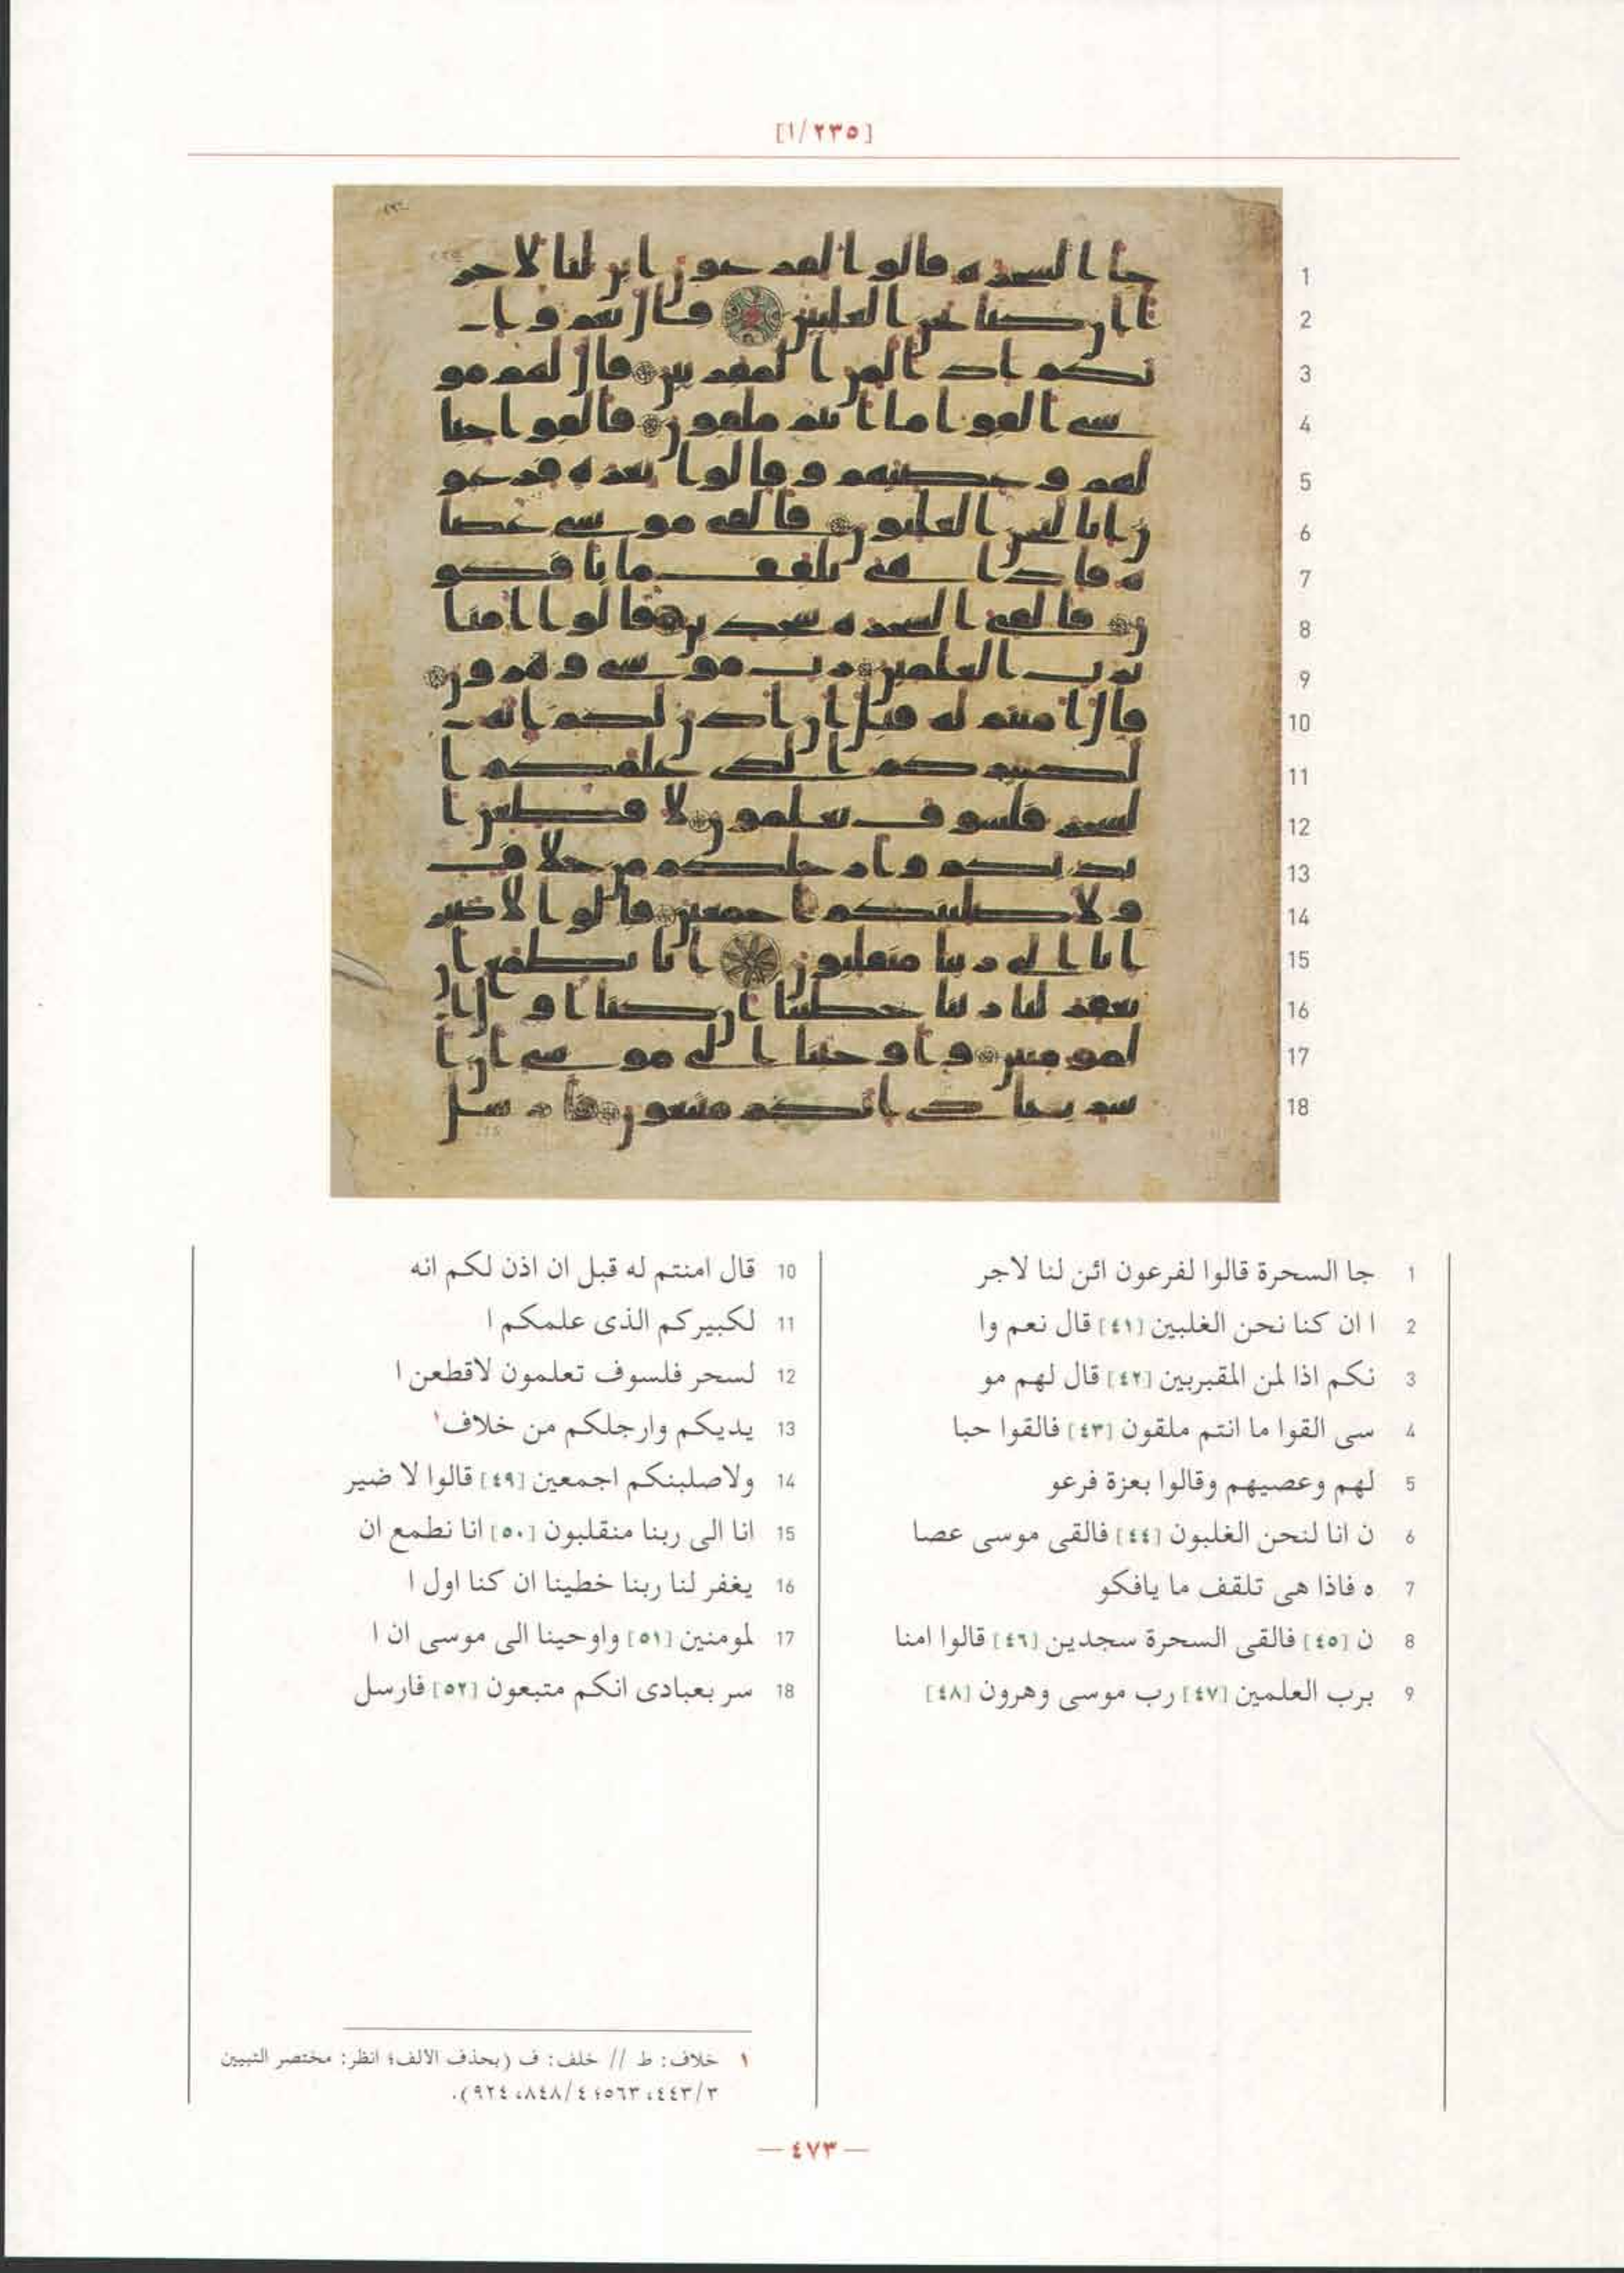 [١/٢٣٥]
1
2
3
4
5
6
7
8
9
10
11
12
13
14
15
16
17
18
1 جا السحرة قالوا لفرعون ائن لنا لاجر
2 ا ان كنا نحن الغلبين [٤١] قال نعم وا
3 نكم اذا لمن المقربين [٤٢] قال لهم مو
4 سى القوا ما انتم ملقون [٤٣] فالقوا حبا
5 لهم وعصيهم وقالوا بعزة فرعو
6 ن انا لنحن الغلبون [٤٤] فالقى موسى عصا
7 ه فاذا هى تلقف ما يافكو
8 ن [٤٥] فالقى السحرة سجدين [٤٦] قالوا امنا
9 برب العلمين [٤٧] رب موسى وهرون [٤٨]
10 قال امنتم له قبل ان اذن لكم انه
11 لكبيركم الذى علمكم ا
12 لسحر فلسوف تعلمون لاقطعن ا
13 يديكم وارجلكم من خلاف١
14 ولاصلبنكم اجمعين [٤٩] قالوا لا ضير
15 انا الى ربنا منقلبون [٥٠] انا نطمع ان
16 يغفر لنا ربنا خطينا ان كنا اول ا
17 لمومنين [٥١] واوحينا الى موسى ان ا
18 سر بعبادى انكم متبعون [٥٢] فارسل
١ خلاف: ط // خلف: ف (بحذف الالف؛ انظر: مختصر التبيين
٤٤٣/٣، ٥٦٣؛ ٨٤٨/٤، ٩٢٤).
— ٤٧٣ —